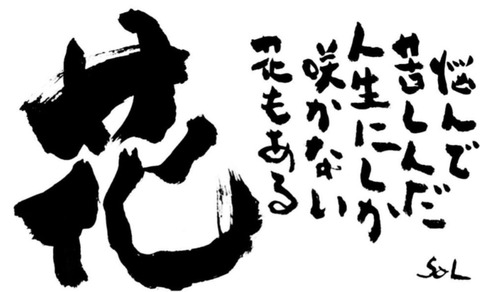 花
悩んで
苦しんだ
人生にしか
咲かない
花もある
SOL